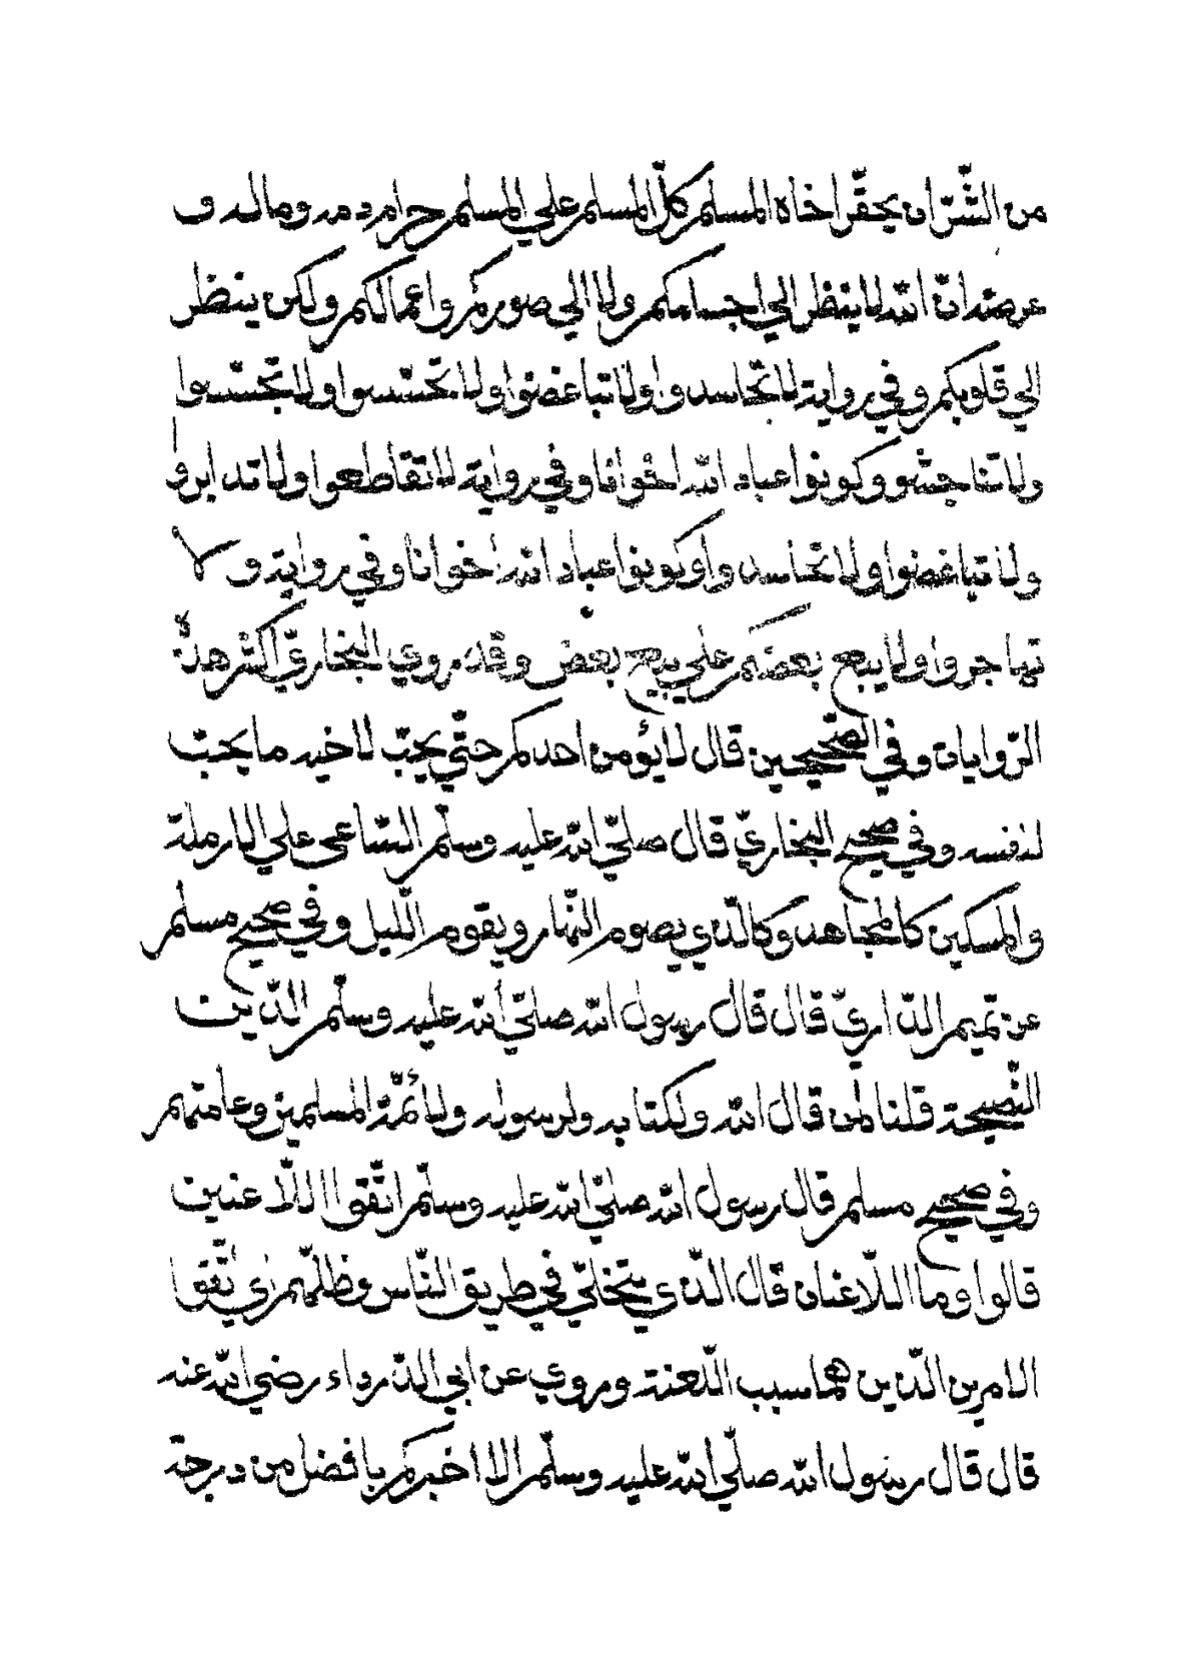 من الشّرّ ان يحقّر اخاه المسلم كلّ المسلم علي المسلم حرام دمه وماله و
عرضه انّ اللّه لا ينظر الي اجسامكم ولا الي صوركم واعمالكم ولكن ينظر
الي قلوبكم وفي رواية لا تحاسدوا ولا تباغضوا ولا تحسّسوا ولا تجسّسوا
ولا تناجشوو وكونوا عباد اللّه اخوانا وفي رواية لا تقاطعوا ولا تدابروا
ولا تباغضوا ولا تحاسدوا وكونوا عباد اللّه اخوانا وفي رواية و لا
تهاجروا ولا يبع بعضكم علي بيع بعض وقد روي البخاريّ اكثر هذه
الرّوايات وفي الصّحيحين قال لا يؤمن احدكم حتّي يحبّ لاخيه ما يحبّ
لنفسه وفي صحيح البخاريّ قال صلّي اللّه عليه وسلّم السّاعي علي الارملة
والمسكين كالمجاهد وكالّذي يصوم النّهار ويقوم اللّيل وفي صحيح مسلم
عن تميم الدّاريّ قال قال رسول اللّه صلّي اللّه عليه وسلّم الدّين
النّصيحة قلنا لمن قال اللّه ولكتابه ولرسوله ولائمّة المسلمين وعامتهم
وفي صحيح مسلم قال رسول اللّه صلّي اللّه عليه وسلّم اتّقوا اللّاعنين
قالوا وما اللّاعنان قال الّذي يتخلّي في طريق النّاس وظلّهم اي اتّقوا
الامرين الّذين هما سبب اللّعنة وروي عن ابي الدّرداء رضي اللّه عنه
قال قال رسول اللّه صلّي اللّه عليه وسلّم الا اخبركم بافضل من درجة